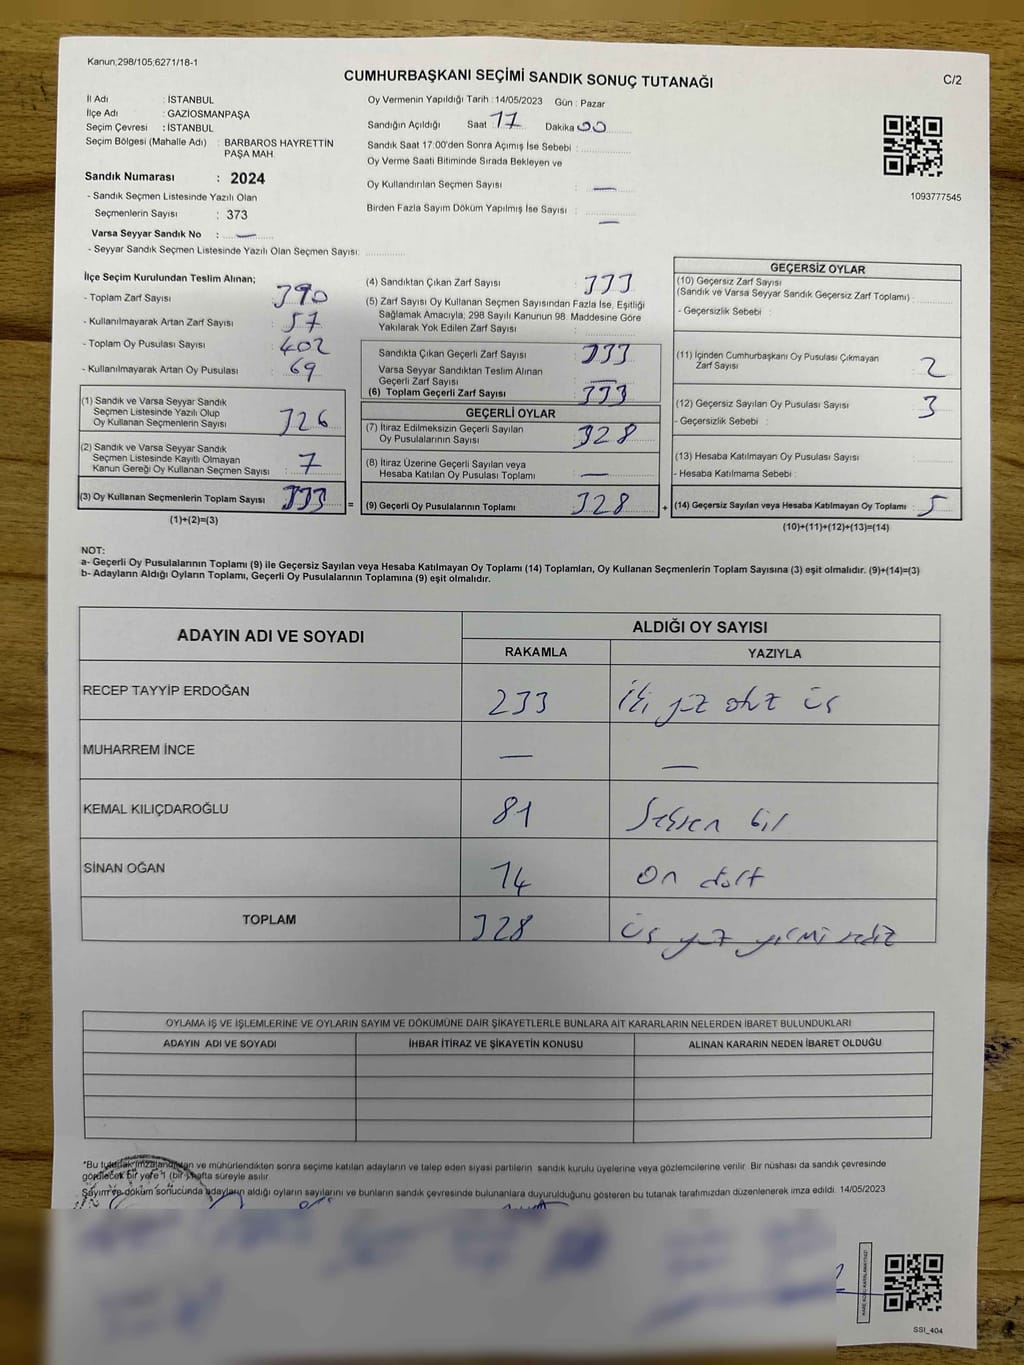 Kanun,298/105,6271/18-1
CUMHURBAŞKANI SEÇİMİ SANDIK SONUÇ TUTANAĞI
C/2
İl Adı : İSTANBUL
İlçe Adı : GAZİOSMANPAŞA
Seçim Çevresi : İSTANBUL
Seçim Bölgesi (Mahalle Adı) : BARBAROS HAYRETTİN
PAŞA MAH.
Sandık Numarası : 2024
- Sandık Seçmen Listesinde Yazılı Olan
Seçmenlerin Sayısı : 373
Varsa Seyyar Sandık No : —
- Seyyar Sandık Seçmen Listesinde Yazılı Olan Seçmen Sayısı:
Oy Vermenin Yapıldığı Tarih : 14/05/2023 Gün : Pazar
Sandığın Açıldığı Saat : 17 Dakika : 00
Sandık Saat 17:00'den Sonra Açımış İse Sebebi :
Oy Verme Saati Bitiminde Sırada Bekleyen ve
Oy Kullandırılan Seçmen Sayısı : —
Birden Fazla Sayım Döküm Yapılmış İse Sayısı : —
1093777545
İlçe Seçim Kurulundan Teslim Alınan;
- Toplam Zarf Sayısı : 390
- Kullanılmayarak Artan Zarf Sayısı : 57
- Toplam Oy Pusulası Sayısı : 402
- Kullanılmayarak Artan Oy Pusulası : 69
(1) Sandık ve Varsa Seyyar Sandık
Seçmen Listesinde Yazılı Olup
Oy Kullanan Seçmenlerin Sayısı : 326
(2) Sandık ve Varsa Seyyar Sandık
Seçmen Listesinde Kayıtlı Olmayan
Kanun Gereği Oy Kullanan Seçmen Sayısı : 7
(3) Oy Kullanan Seçmenlerin Toplam Sayısı : 333 =
(1)+(2)=(3)
(4) Sandıktan Çıkan Zarf Sayısı : 333
(5) Zarf Sayısı Oy Kullanan Seçmen Sayısından Fazla İse, Eşitliği
Sağlamak Amacıyla, 298 Sayılı Kanunun 98. Maddesine Göre
Yakılarak Yok Edilen Zarf Sayısı :
Sandıkta Çıkan Geçerli Zarf Sayısı : 333
Varsa Seyyar Sandıktan Teslim Alınan
Geçerli Zarf Sayısı : —
(6) Toplam Geçerli Zarf Sayısı : 333
GEÇERLİ OYLAR
(7) İtiraz Edilmeksizin Geçerli Sayılan
Oy Pusulalarının Sayısı : 328
(8) İtiraz Üzerine Geçerli Sayılan veya
Hesaba Katılan Oy Pusulası Toplamı : —
(9) Geçerli Oy Pusulalarının Toplamı : 328 +
GEÇERSİZ OYLAR
(10) Geçersiz Zarf Sayısı
(Sandık ve Varsa Seyyar Sandık Geçersiz Zarf Toplamı) :
- Geçersizlik Sebebi :
(11) İçinden Cumhurbaşkanı Oy Pusulası Çıkmayan
Zarf Sayısı : 2
(12) Geçersiz Sayılan Oy Pusulası Sayısı : 3
- Geçersizlik Sebebi :
(13) Hesaba Katılmayan Oy Pusulası Sayısı :
- Hesaba Katılmama Sebebi :
(14) Geçersiz Sayılan veya Hesaba Katılmayan Oy Toplamı : 5
(10)+(11)+(12)+(13)=(14)
NOT:
a- Geçerli Oy Pusulalarının Toplamı (9) ile Geçersiz Sayılan veya Hesaba Katılmayan Oy Toplamı (14) Toplamları, Oy Kullanan Seçmenlerin Toplam Sayısına (3) eşit olmalıdır. (9)+(14)=(3)
b- Adayların Aldığı Oyların Toplamı, Geçerli Oy Pusulalarının Toplamına (9) eşit olmalıdır.
ADAYIN ADI VE SOYADI ALDIĞI OY SAYISI
RAKAMLA YAZIYLA
RECEP TAYYİP ERDOĞAN 233 iki yüz otuz üç
MUHARREM İNCE — —
KEMAL KILIÇDAROĞLU 81 Seksen bir
SİNAN OĞAN 14 On dört
TOPLAM 328 üç yüz yirmi sekiz
OYLAMA İŞ VE İŞLEMLERİNE VE OYLARIN SAYIM VE DÖKÜMÜNE DAİR ŞİKAYETLERLE BUNLARA AİT KARARLARIN NELERDEN İBARET BULUNDUKLARI
ADAYIN ADI VE SOYADI İHBAR İTİRAZ VE ŞİKAYETİN KONUSU ALINAN KARARIN NEDEN İBARET OLDUĞU
*Bu tutanak imzalandıktan ve mühürlendikten sonra seçime katılan adayların ve talep eden siyasi partilerin sandık kurulu üyelerine veya gözlemcilerine verilir. Bir nüshası da sandık çevresinde
görülecek bir yere 1 (bir) hafta süreyle asılır.
Sayım ve döküm sonucunda adayların aldığı oyların sayılarını ve bunların sandık çevresinde bulunanlara duyurulduğunu gösteren bu tutanak tarafımızdan düzenlenerek imza edildi. 14/05/2023
SSI_404